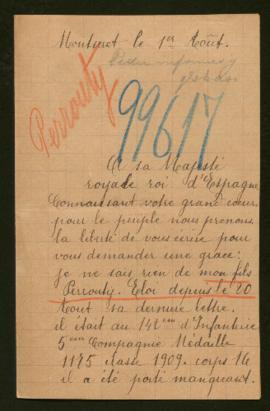 Montmet le 1er Août.
Pedir informes y
Perrouty
99617
A sa Majesté
royale roi d'Espagne
Connaissant votre grand cœur
pour le peuple nous prenons
la liberté de vous écrire pour
vous demander une grâce:
je ne sais rien de mon fils
Perrouty. Eloi depuis le 20
tout sa dernière lettre.
il était au 142eme d'Infanterie
5eme Compagnie Médaille
1175 classe 1909. corps 16
il a été porté manquant.